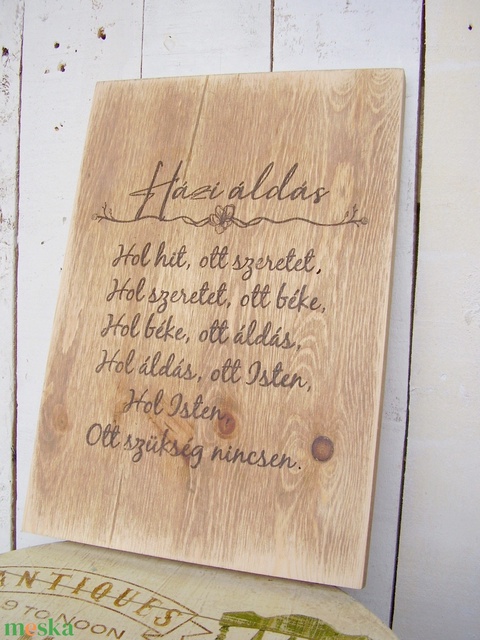 Házi áldás
Hol hit, ott szeretet,
Hol szeretet, ott béke,
Hol béke, ott áldás,
Hol áldás, ott Isten,
Hol Isten,
Ott szükség nincsen.
ANTIQUES
9 TO NOON
meska